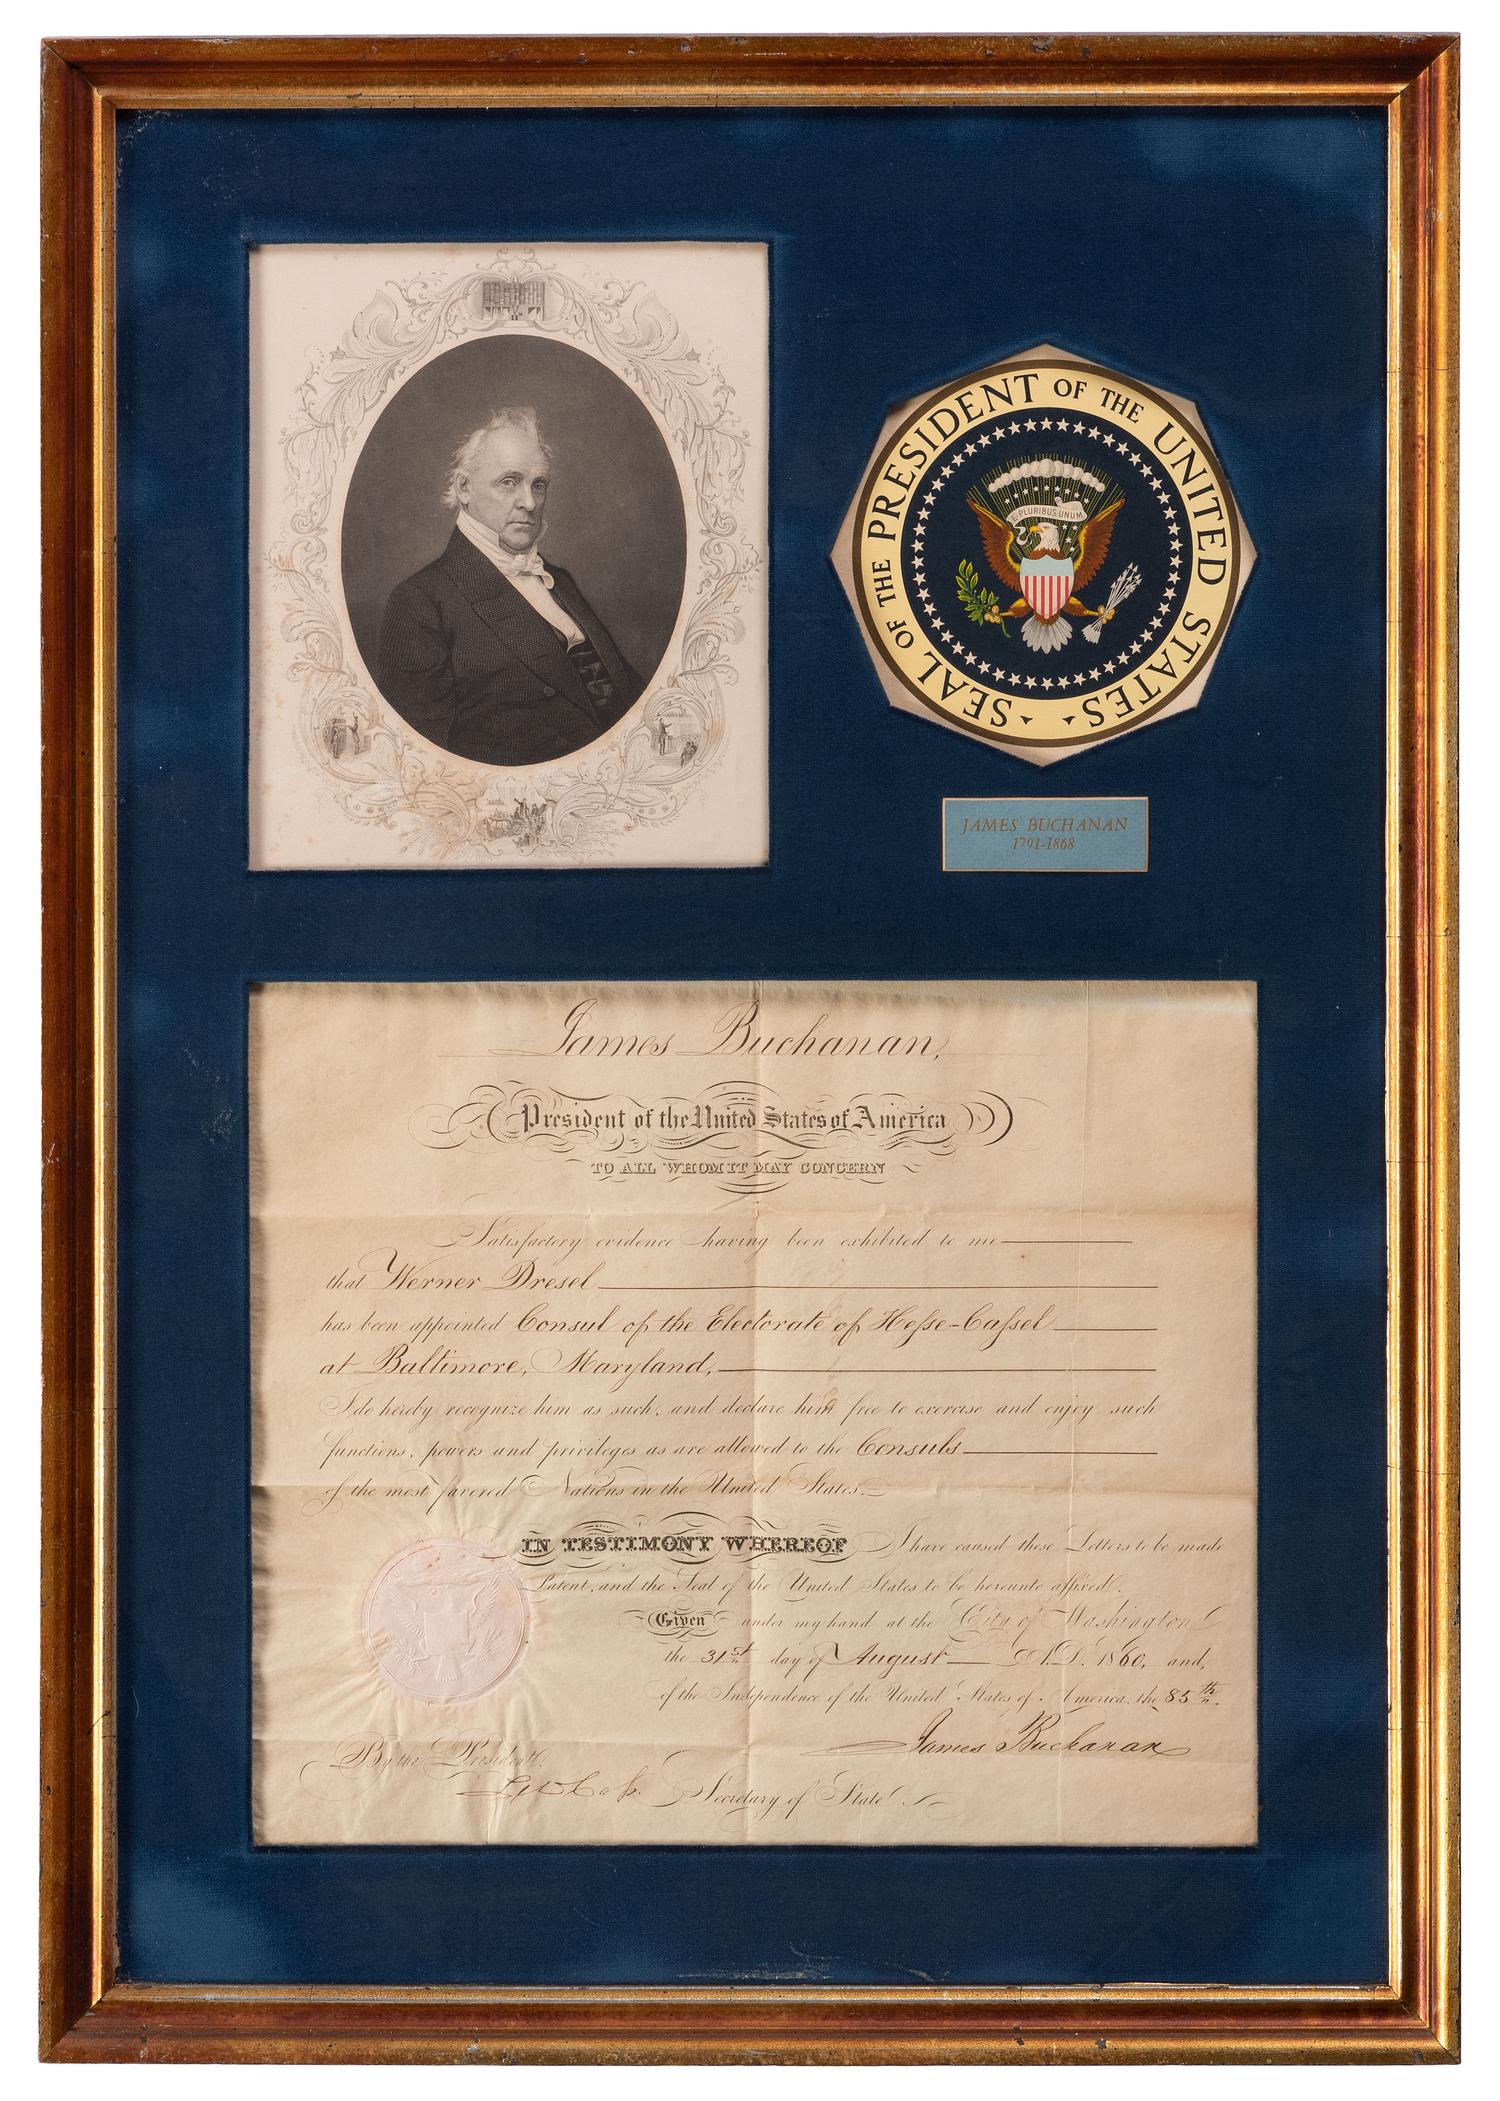 SEAL OF THE PRESIDENT OF THE UNITED STATES
E PLURIBUS UNUM
JAMES BUCHANAN
1791-1868
James Buchanan,
President of the United States of America
TO ALL WHOM IT MAY CONCERN
Satisfactory evidence having been exhibited to me
that Werner Dresel
has been appointed Consul of the Electorate of Hesse-Cassel
at Baltimore, Maryland,
I do hereby recognize him as such, and declare him free to exercise and enjoy such
functions, powers and privileges as are allowed to the Consuls
of the most favored Nations in the United States.
IN TESTIMONY WHEREOF I have caused these Letters to be made
Patent, and the Seal of the United States to be hereunto affixed.
Given under my hand at the City of Washington
the 31st day of August A.D. 1860, and,
of the Independence of the United States of America, the 85th.
James Buchanan
By the President.
Lew Cass Secretary of State.